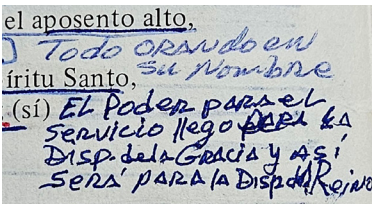 el aposento alto,
Todo orando en
su Nombre
íritu Santo,
(sí) El Poder para el
servicio llego para la
Disp. de la Gracia y así
será para la Disp del Reino